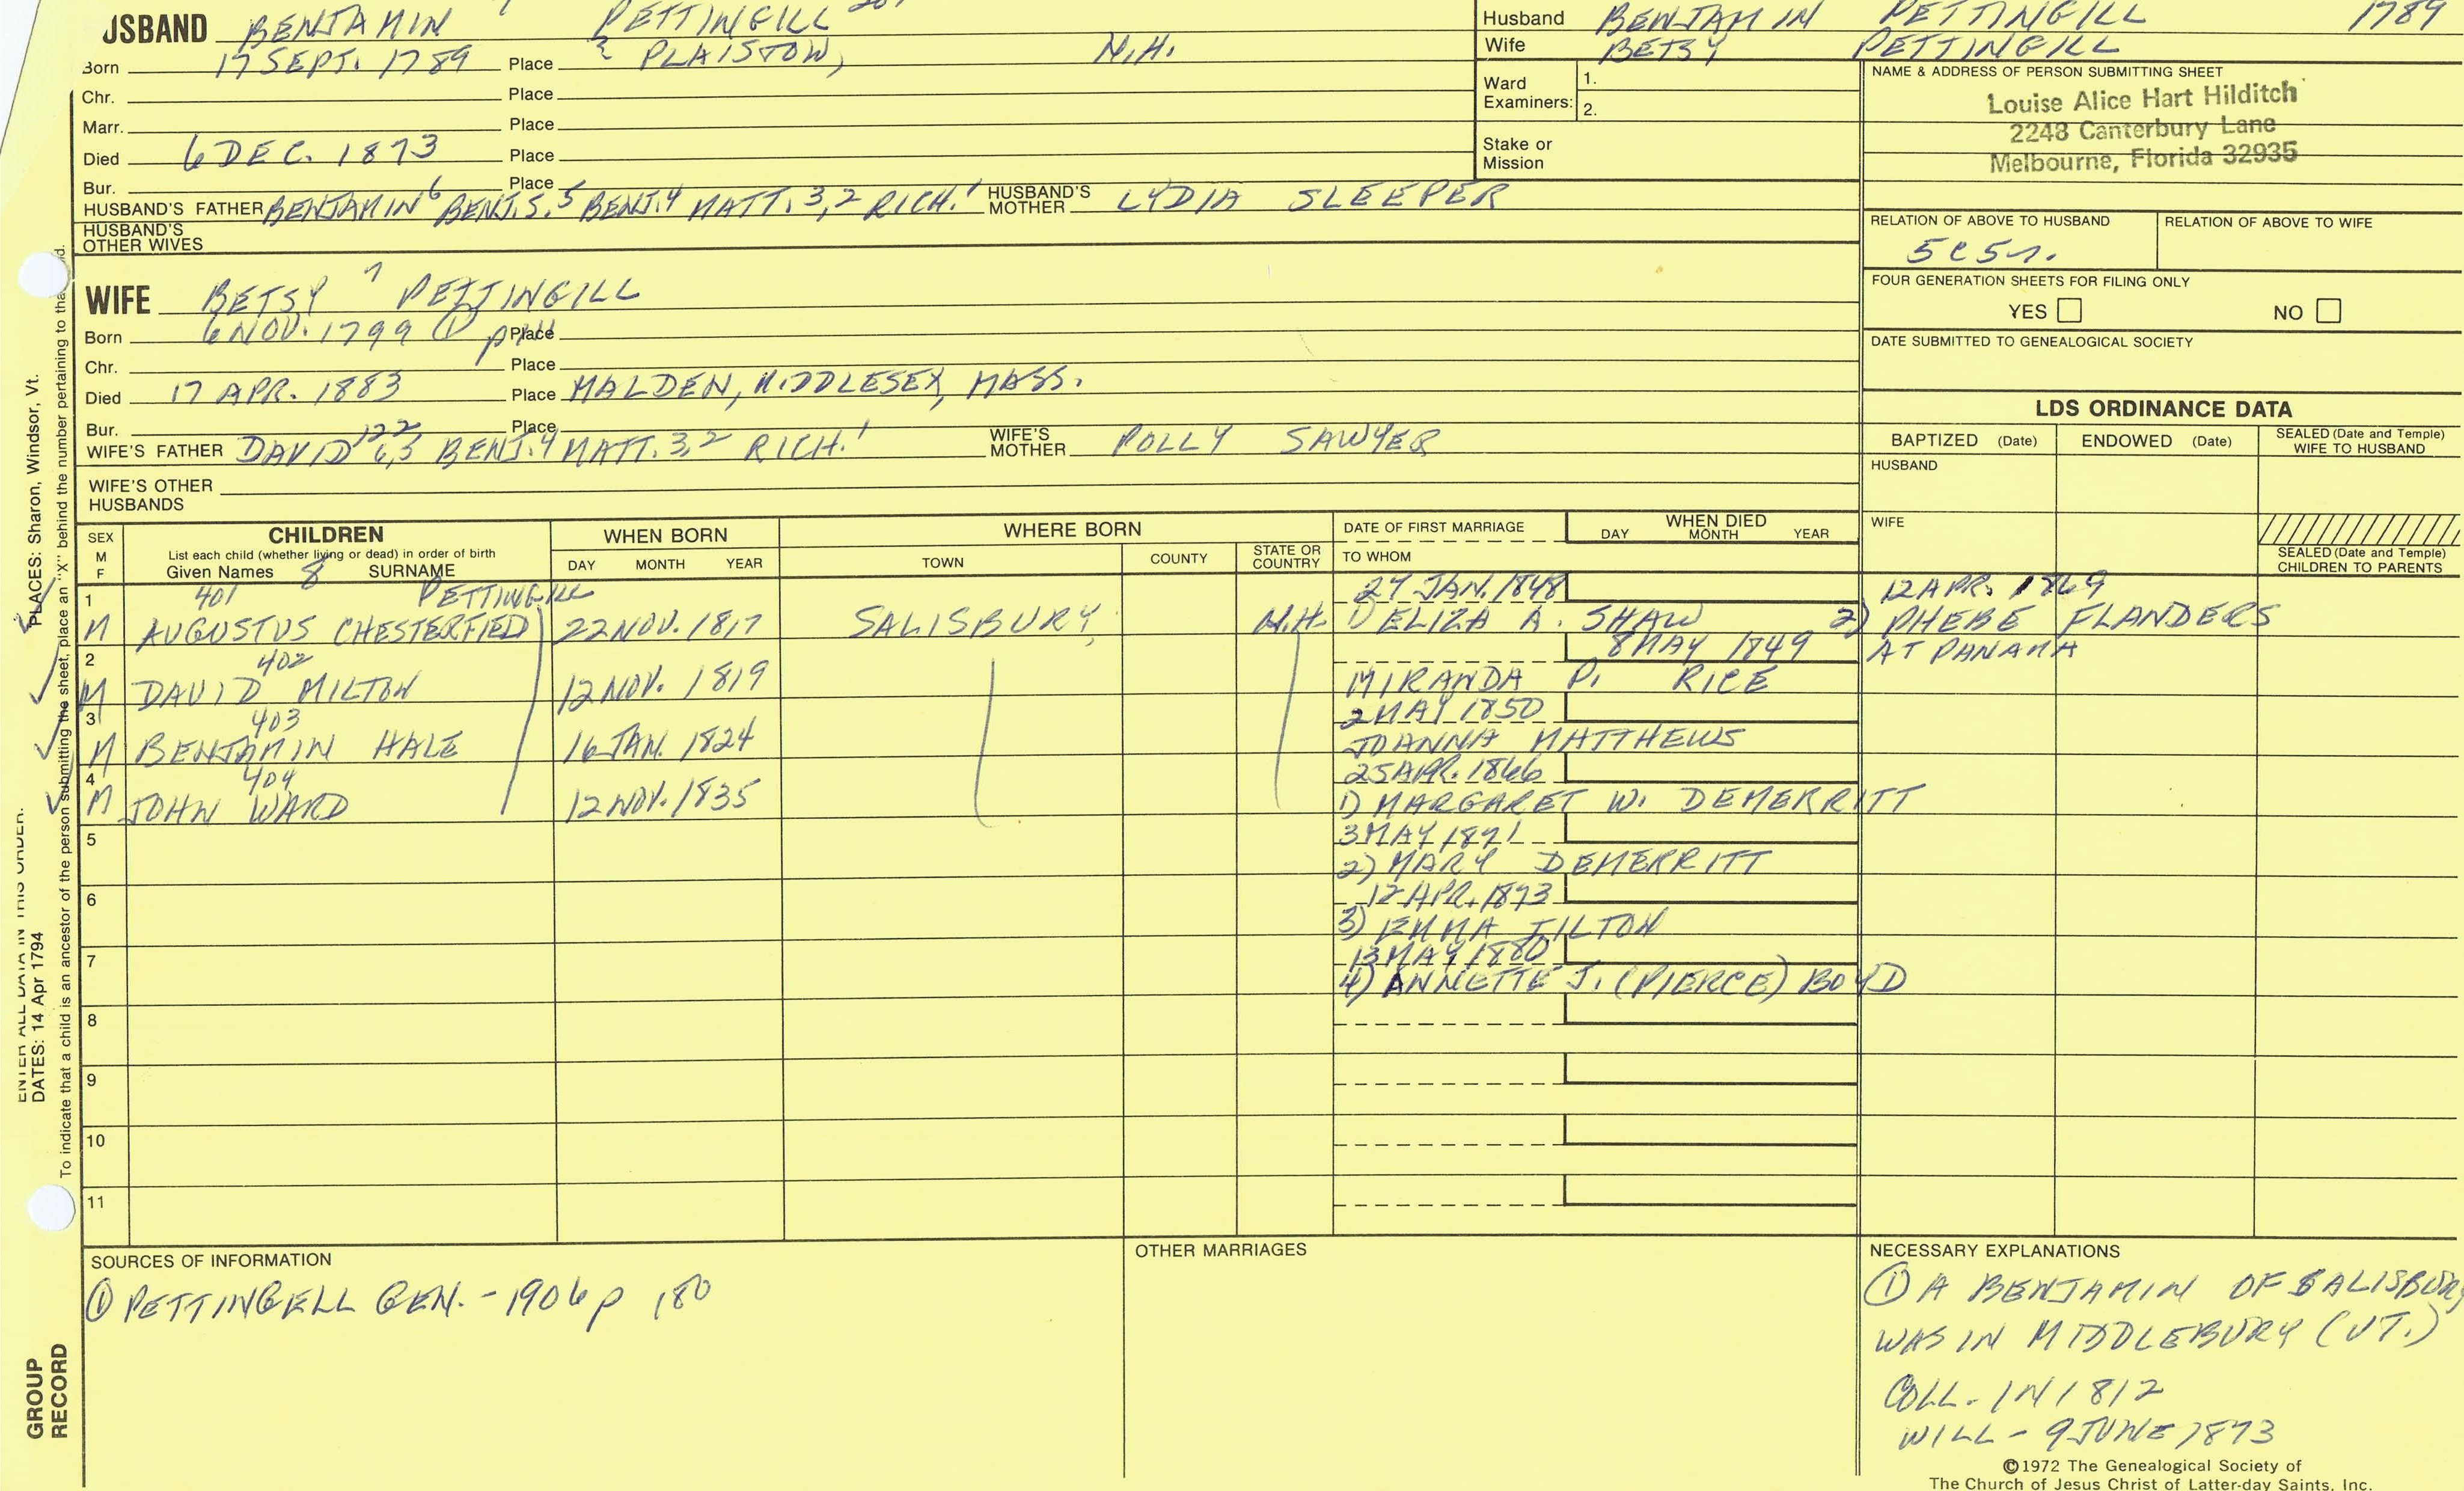 USBAND BENJAMIN 7 PETTINGILL
Born 17 SEPT. 1789 Place PLAISTOW, N.H.
Chr. Place
Marr. Place
Died 6 DEC. 1873 Place
Bur. Place
HUSBAND'S FATHER BENJAMIN 6 BENJ.S. 5 BENJ.4 MATT. 3,2 RICH.1 HUSBAND'S MOTHER LYDIA SLEEPER
HUSBAND'S OTHER WIVES
Husband BENJAMIN PETTINGILL 1789
Wife BETSY PETTINGILL
Ward Examiners: 1.
2.
Stake or Mission
NAME & ADDRESS OF PERSON SUBMITTING SHEET
Louise Alice Hart Hilditch
2248 Canterbury Lane
Melbourne, Florida 32935
RELATION OF ABOVE TO HUSBAND RELATION OF ABOVE TO WIFE
5C5r.
FOUR GENERATION SHEETS FOR FILING ONLY
YES NO
DATE SUBMITTED TO GENEALOGICAL SOCIETY
WIFE BETSY 7 PETTINGILL
Born 6 NOV. 1799 ① Place
Chr. Place
Died 17 APR. 1883 Place MALDEN, MIDDLESEX, MASS.
Bur. Place
WIFE'S FATHER DAVID 122 6,5 BENJ.4 MATT. 3,2 RICH.1 WIFE'S MOTHER POLLY SAWYER
WIFE'S OTHER HUSBANDS
LDS ORDINANCE DATA
BAPTIZED (Date) ENDOWED (Date) SEALED (Date and Temple) WIFE TO HUSBAND
HUSBAND
WIFE
SEALED (Date and Temple) CHILDREN TO PARENTS
SEX M F CHILDREN WHEN BORN WHERE BORN DATE OF FIRST MARRIAGE WHEN DIED
List each child (whether living or dead) in order of birth DAY MONTH YEAR TOWN COUNTY STATE OR COUNTRY TO WHOM DAY MONTH YEAR
Given Names 8 SURNAME
1 401 PETTINGILL 27 JAN. 1848 12 APR. 1869
M AUGUSTUS CHESTERFIED 22 NOV. 1817 SALISBURY, N.H. 1) ELIZA A. SHAW 2) PHEBE FLANDERS
2 402 8 MAY 1849 AT PANAMA
M DAVID MILTON 12 NOV. 1819 MIRANDA P. RICE
3 403 2 MAY 1850
M BENJAMIN HALE 16 JAN. 1824 JOANNA MATTHEWS
4 404 25 APR. 1866
M JOHN WARD 12 NOV. 1835 1) MARGARET W. DEMERRITT
5 3 MAY 1871
2) MARY DEMERRITT
6 12 APR. 1873
3) EMMA TILTON
7 13 MAY 1880
4) ANNETTE J. (PIERCE) BOYD
8
9
10
11
SOURCES OF INFORMATION
① PETTINGELL GEN. - 1906 p 180
OTHER MARRIAGES
NECESSARY EXPLANATIONS
① A BENJAMIN OF SALISBURY
WAS IN MIDDLEBURY (VT.)
COLL. IN 1812
WILL - 9 JUNE 1873
©1972 The Genealogical Society of
The Church of Jesus Christ of Latter-day Saints, Inc.
ENTER ALL DATA IN THIS ORDER.
PLACES: Sharon, Windsor, Vt.
DATES: 14 Apr 1794
To indicate that a child is an ancestor of the person submitting the sheet, place an "X" behind the number pertaining to
GROUP
RECORD